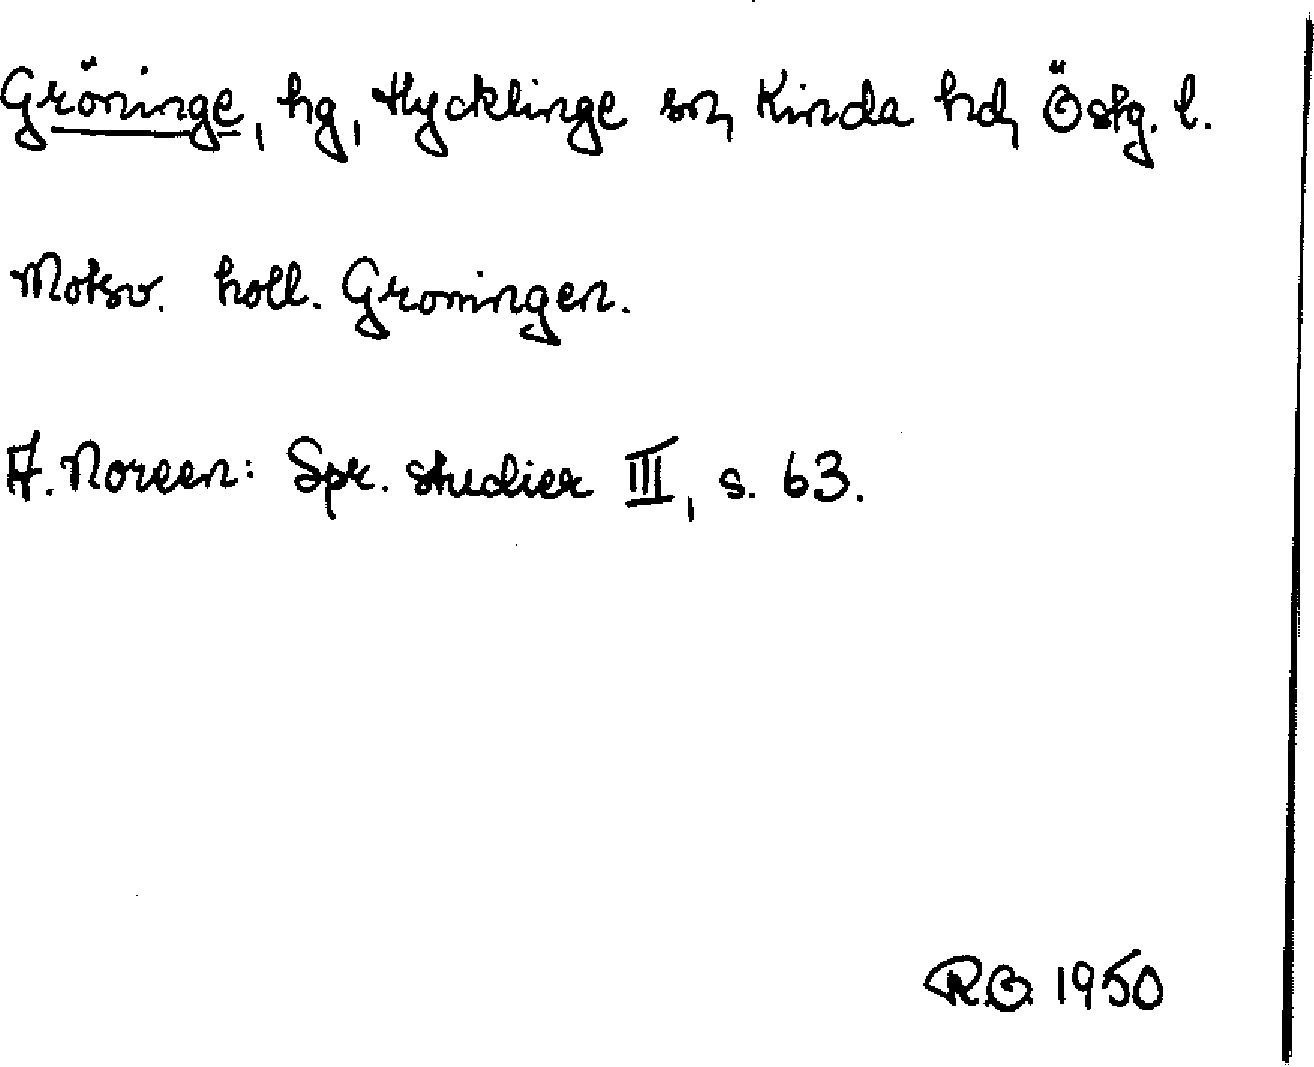 Gröninge, hg, Hycklinge sn, Kinda hd, Östg. l.
Motsv. holl. Groningen.
A. Noreen: Spr. studier III, s. 63.
R.O. 1950